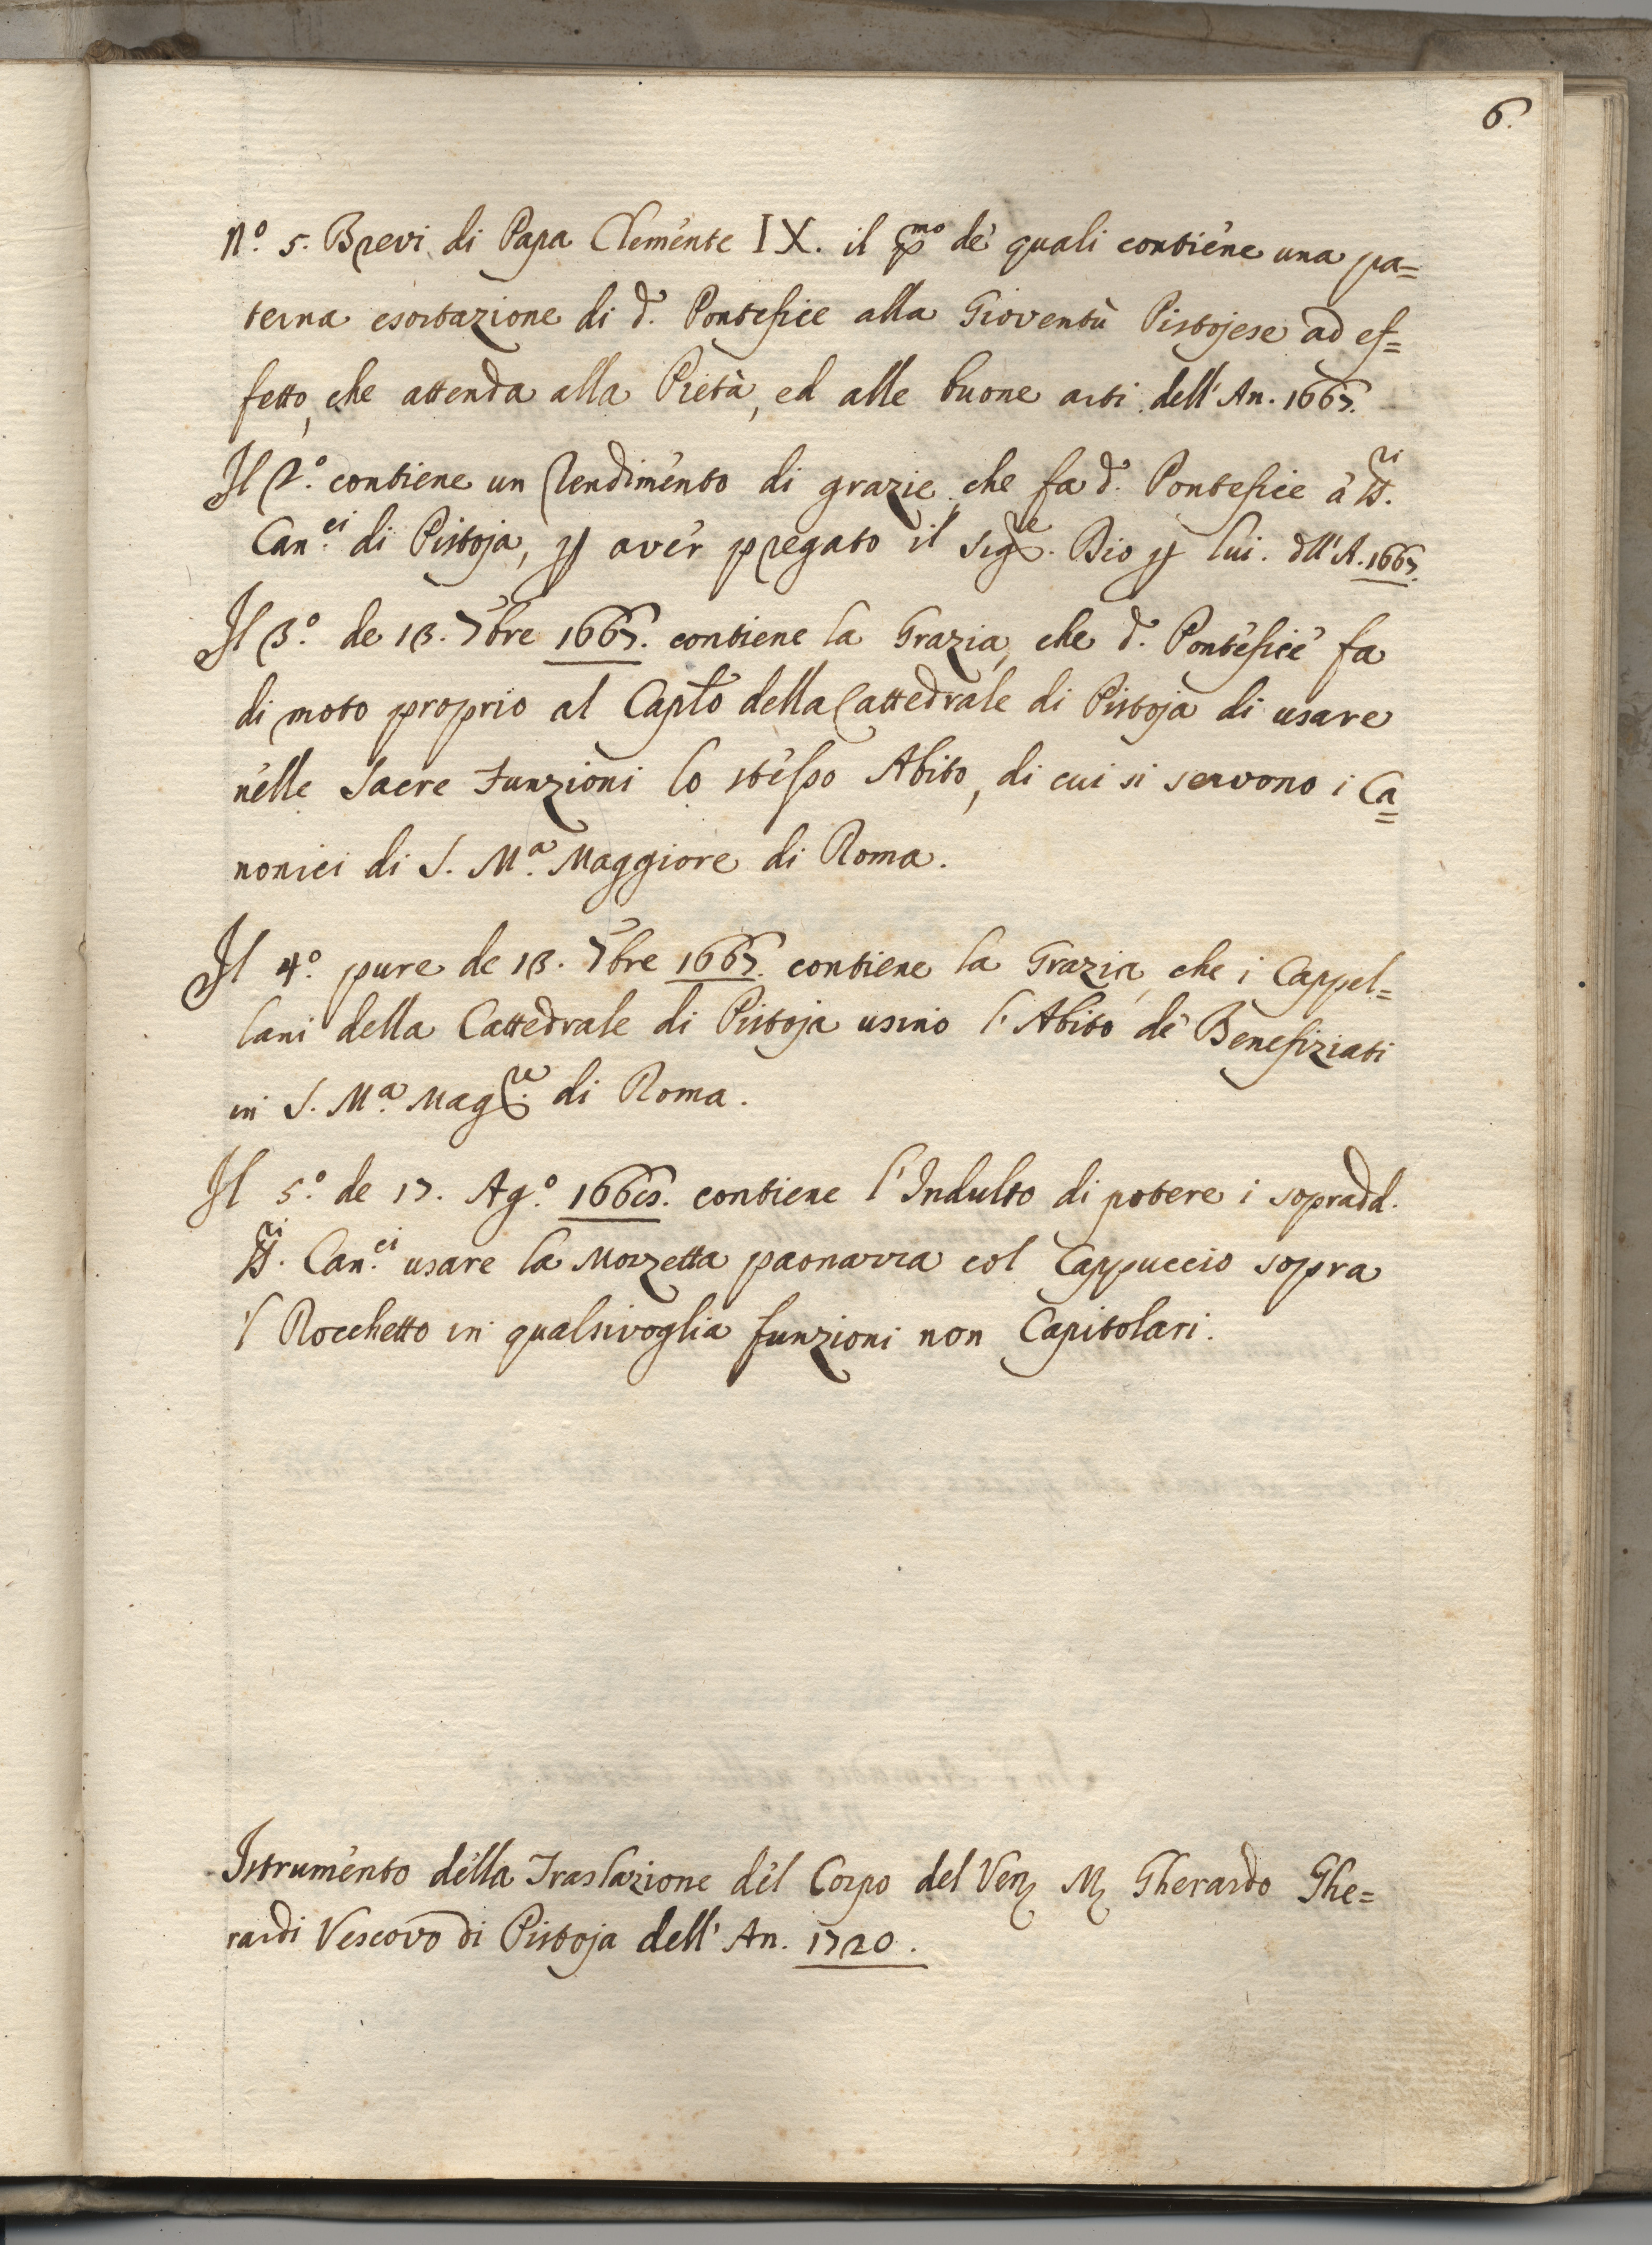 6.
N.º 5. Brevi di Papa Clemente IX. il pmo de' quali contiene una pa=
terna esortazione di d.º Pontefice alla Gioventù Pistojese ad ef=
fetto, che attenda alla Pietà, ed alle buone arti dell'An. 1667.
Il 2.º contiene un Rendimento di grazie, che fa d.º Pontefice a' SS.ri
Can.ci di Pistoja, p aver pregato il Sig.re Dio p lui. dll'A. 1667.
Il 3.º de 13. 7bre 1667. contiene la Grazia, che d.º Pontefice fa
di moto proprio al Caplo della Cattedrale di Pistoja di usare
nelle Sacre Funzioni lo stesso Abito, di cui si servono i Ca=
nonici di S. M.a Maggiore di Roma.
Il 4.º pure de 13. 7bre 1667. contiene la Grazia, che i Cappel=
lani della Cattedrale di Pistoja usino l'Abito de' Benefiziati
in S. M.a Mag.re di Roma.
Il 5.º de 17. Ag.º 1668. contiene l'Indulto di potere i sopradd.
SS.ri Can.ci usare la Mozzetta paonazza col Cappuccio sopra
'l Rocchetto in qualsivoglia funzioni non Capitolari.
Istrumento della Traslazione del Corpo del Ven. M. Gherardo Ghe=
rardi Vescovo di Pistoja dell'An. 1720.